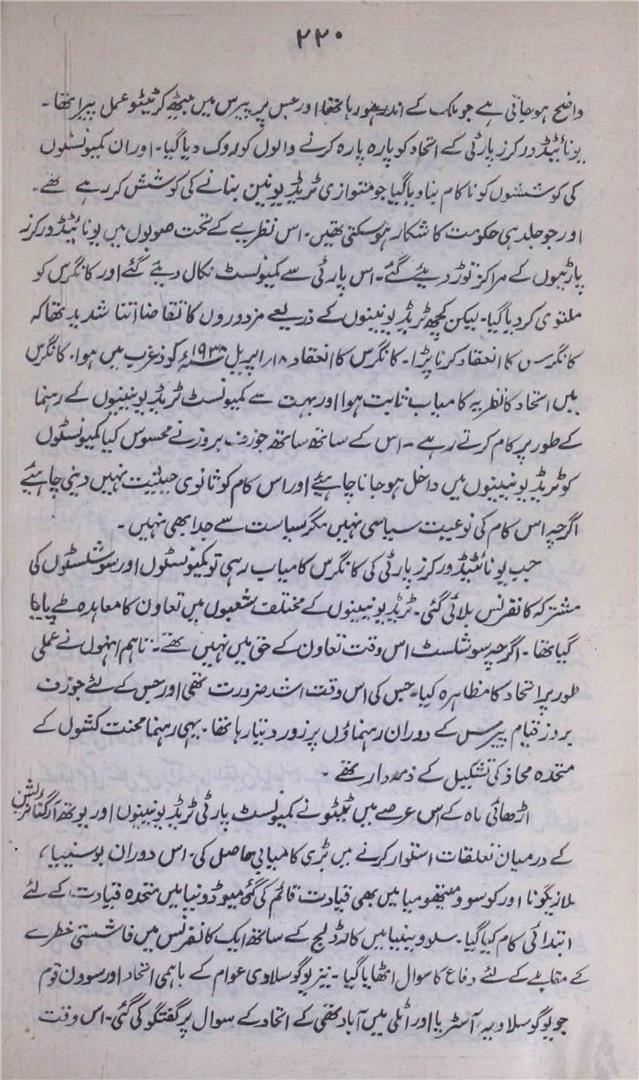 ۲۲۰
واضح ہو جاتی ہے جو ملک کے اندر ہو رہا تھا اور جس پر پیرس میں بیٹھ کر ٹیٹو عمل پیرا تھا۔
یونائیٹڈ ورکرز پارٹی کے اتحاد کو پارہ پارہ کرنے والوں کو روک دیا گیا۔ اور ان کمیونسٹوں
کی کوششوں کو ناکام بنا دیا گیا جو متوازی ٹریڈ یونین بنانے کی کوشش کر رہے تھے۔
اور جو جلد ہی حکومت کا شکار ہو سکتی تھیں۔ اس نظریے کے تحت صوبوں میں یونائیٹڈ ورکرز
پارٹیوں کے مراکز توڑ دیئے گئے۔ اس پارٹی سے کمیونسٹ نکال دیئے گئے اور کانگرس کو
ملتوی کر دیا گیا۔ لیکن کچھ ٹریڈ یونینوں کے ذریعے مزدوروں کا تقاضا اتنا شدید تھا کہ
کانگرس کا انعقاد کرنا پڑا۔ کانگرس کا انعقاد ۱۸ اپریل ۱۹۳۸ء کو ذغرب میں ہوا۔ کانگرس
میں اتحاد کا نظریہ کامیاب ثابت ہوا اور بہت سے کمیونسٹ ٹریڈ یونینوں کے رہنما
کے طور پر کام کرتے رہے۔ اس کے ساتھ ساتھ جوزف بروز نے محسوس کیا کمیونسٹوں
کو ٹریڈ یونینوں میں داخل ہو جانا چاہیئے اور اس کام کو ثانوی حیثیت نہیں دینی چاہیئے
اگرچہ اس کام کی نوعیت سیاسی نہیں مگر سیاست سے جدا بھی نہیں۔
جب یونائیٹڈ ورکرز پارٹی کی کانگرس کامیاب رہی تو کمیونسٹوں اور سوشلسٹوں کی
مشترکہ کانفرنس بلائی گئی۔ ٹریڈ یونینوں کے مختلف شعبوں میں تعاون کا معاہدہ طے پایا
گیا تھا۔ اگرچہ سوشلسٹ اس وقت تعاون کے حق میں نہیں تھے۔ تاہم انہوں نے عملی
طور پر اتحاد کا مظاہرہ کیا۔ جس کی اس وقت اشد ضرورت تھی اور جس کے لئے جوزف
بروز قیام پیرس کے دوران رہنماؤں پر زور دیتا رہا تھا۔ یہی رہنما محنت کشوں کے
متحدہ محاذ کی تشکیل کے ذمہ دار تھے۔
اڑھائی ماہ کے اس عرصے میں ٹیٹو نے کمیونسٹ پارٹی ٹریڈ یونینوں اور یوتھ آرگنائزیشن
کے درمیان تعلقات استوار کرنے میں بڑی کامیابی حاصل کی۔ اس دوران بوسنیا،
ہرزیگونا اور کوسوو میتوھیا میں بھی قیادت قائم کی گئی میسوڈونیا میں متحدہ قیادت کے لئے
ابتدائی کام کیا گیا۔ سلووینیا میں کارڈلیج کے ساتھ ایک کانفرنس میں فاشستی خطرے
کے مقابلے کے لئے دفاع کا سوال اٹھایا گیا۔ نیز یوگوسلاوی عوام کے باہمی اتحاد اور سلووین قوم
جو یوگوسلاویہ، آسٹریا اور اٹلی میں آباد تھی کے اتحاد کے سوال پر گفتگو کی گئی۔ اس وقت